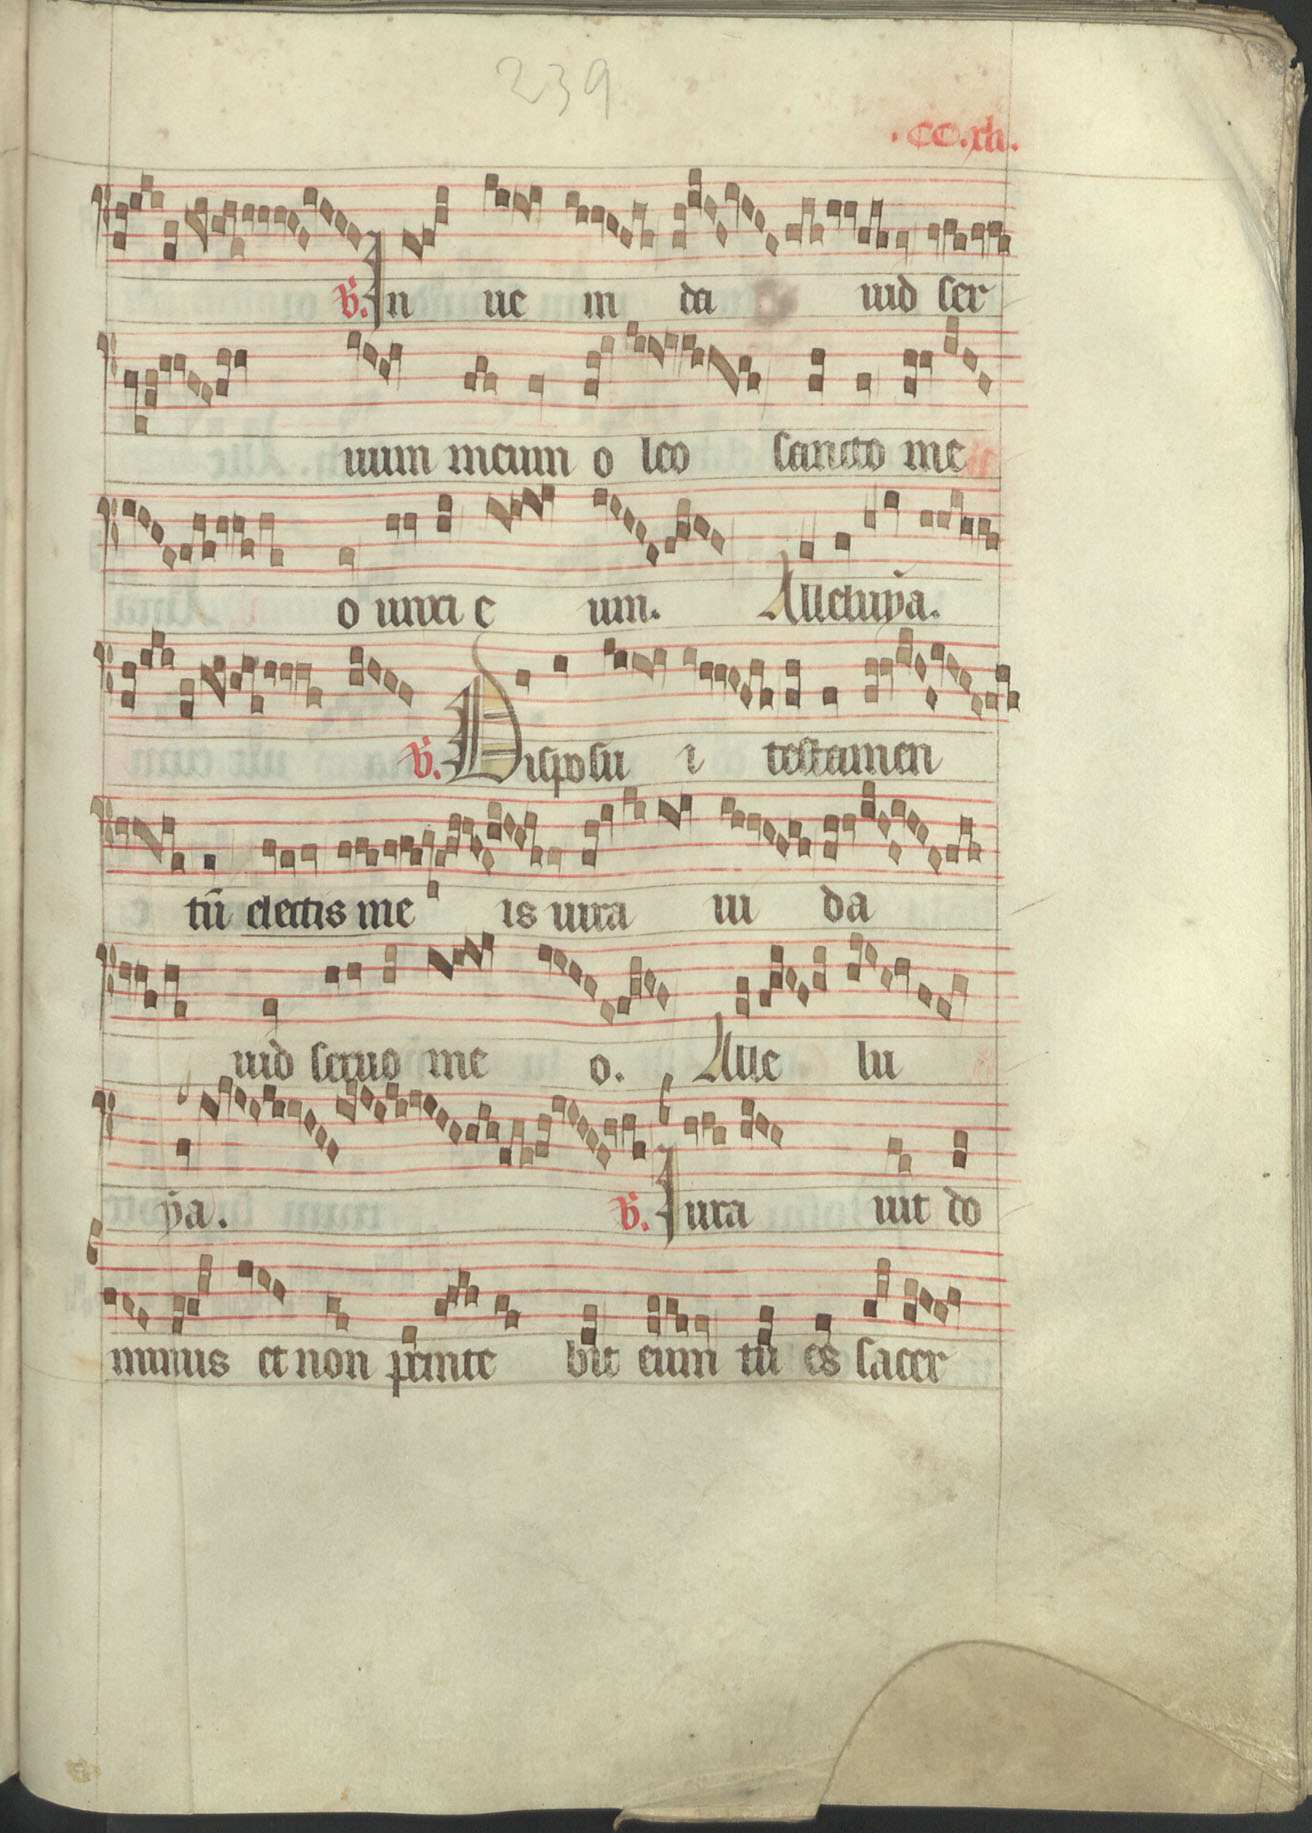 239
.CC.xli.
V. In ue ni da uid ser
uum meum o leo sancto me
o unxi e um. Alleluya.
V. Disposu i testamen
tū electis me is iura ui da
uid seruo me o. Alle lu
ya. V. Iura uit do
minus et non penite bit eum tu es sacer